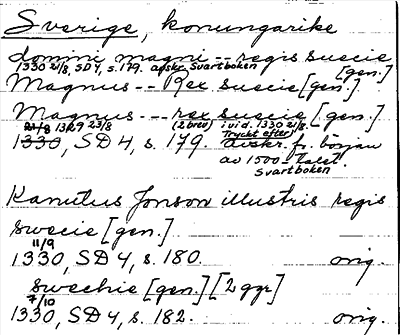 Sverige, konungarike
domini magni -- regis suecie [gen.]
1330 21/8, SD 4, s. 179. avskr. Svartboken
Magnus -- Rex suecie [gen.]
Magnus -- rex suecie [gen.]
(2 brev) i vid. 1330 21/8.
21/8 1329 23/8
1330, SD 4, s. 179. Tryckt efter avskr. fr. början
av 1500-talet.
Svartboken
Kanutus Jonson illustris regis
swecie [gen.]
11/9
1330, SD 4, s. 180. orig.
swechie [gen.] [2 ggr]
7/10
1330, SD 4, s. 182. orig.